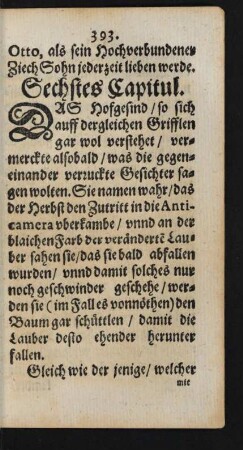 393.
Otto, als sein Hochverbundener
Ziech Sohn jederzeit lieben werde.
Sechstes Capitul.
DAS Hofgesind / so sich
auff dergleichen Grifflen
gar wol verstehet / ver-
merckte alsobald / was die gegen-
einander verruckte Gesichter sa-
gen wolten. Sie namen wahr / das
der Herbst den Zutritt in die Anti-
camera vberkambe / vnnd an der
blaichen Farb der veränderte͂ Lau-
ber sahen sie / das sie bald abfallen
wurden / vnnd damit solches nur
noch geschwinder geschehe / wer-
den sie (im Fall es vonnöthen) den
Baum gar schüttlen / damit die
Lauber desto ehender herunter
fallen.
Gleich wie der jenige / welcher
mit